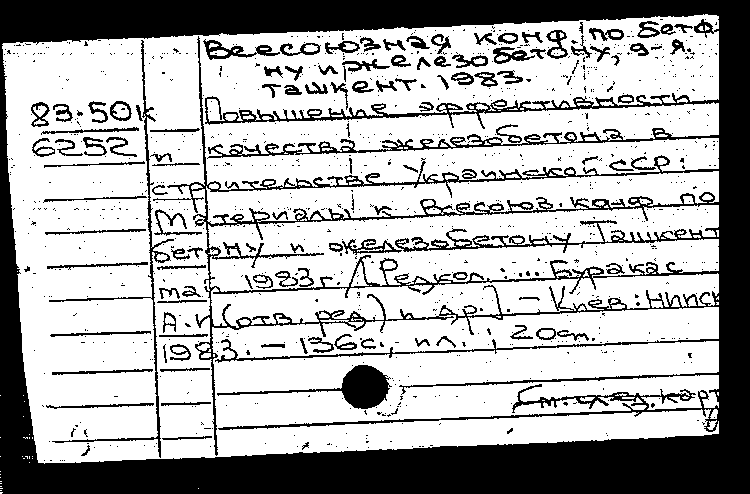 Всесоюзная конф. по бето-
ну и железобетону, 9-я.
Ташкент. 1983.
83.50к Повышение эффективности
6252 и качества железобетона в
строительстве Украинской ССР:
Материалы к Всесоюз. конф. по
бетону и железобетону, Ташкент
май 1983г. / [Редкол.: ... Буракас
А.И. (отв. ред.) и др.]. – Киев: НИИСК
1983. – 136с., ил.; 20см.
См. след. карт